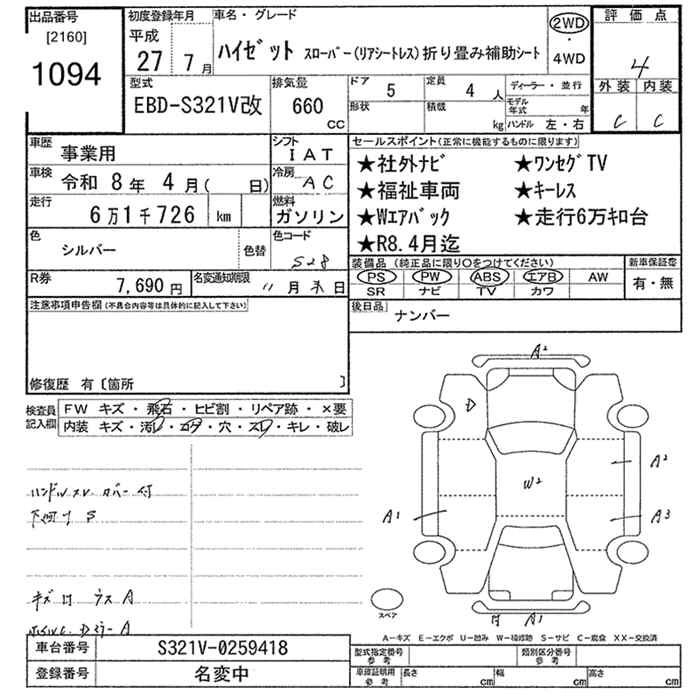 出品番号
[2160]
1094
初度登録年月
平成
27 7月
車名・グレード
ハイゼット スローパー(リアシートレス)折り畳み補助シート
2WD
・
4WD
評価点
4
外装 内装
C C
型式
EBD-S321V改
排気量
660
cc
ドア 5
定員 4 人
形状
積載 kg
ディーラー・並行
モデル年式 年
ハンドル 左・右
車歴 事業用
車検 令和 8年 4月( 日)
走行 6万1千726 km
色 シルバー 色替
シフト IAT
冷房 AC
燃料 ガソリン
色コード S28
セールスポイント(正常に機能するものに限ります)
★社外ナビ ★ワンセグTV
★福祉車両 ★キーレス
★Wエアバック ★走行6万キロ台
★R8.4月迄
装備品(純正品に限り○をつけてください)
PS PW ABS エアB AW
SR ナビ TV カワ
新車保証書
有・無
R券 7,690円
名変通知期限 11月末日
後日品 ナンバー
注意事項申告欄(不具合内容等は具体的に記入して下さい)
修復歴 有〔箇所 〕
検査員記入欄
FW キズ・飛石・ヒビ割・リペア跡・×要
内装 キズ・汚レ・コゲ・穴・スレ・キレ・破レ
ハンドルスレ カバー付
下回りS
A2
D
W2
A2
A1
A3
A1
スペア
A-キズ E-エクボ U-凹み W-補修跡 S-サビ C-腐食 XX-交換済
車台番号 S321V-0259418
登録番号 名変中
型式指定番号 参考
類別区分番号 参考
車庫証明用 参考
長さ cm 幅 cm 高さ cm